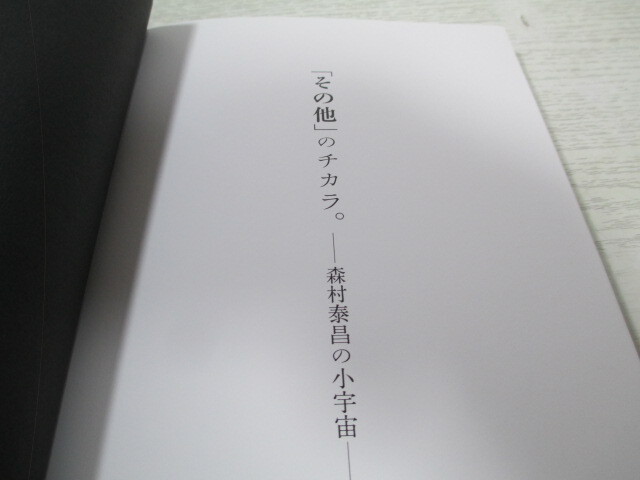 「その他」のチカラ。――森村泰昌の小宇宙――